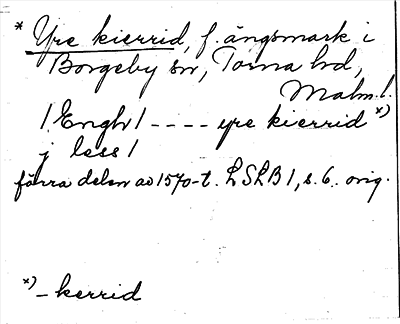 * Yre kierrid, f. ängsmark i
Borgeby sn, Torna hd,
Malm. l.
/Engh/ ---- yre kierrid *)
j less/
förra delen av 1570-t. LSLB 1, s. 6. orig.
*) - kerrid